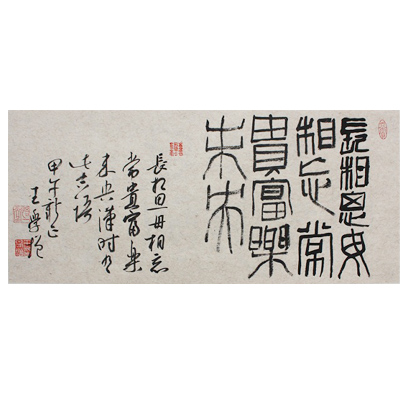 長相思毋
相忘常
貴富樂
未央
長相思毋相忘
常貴富樂
未央漢時
吉語
甲午新正
王學